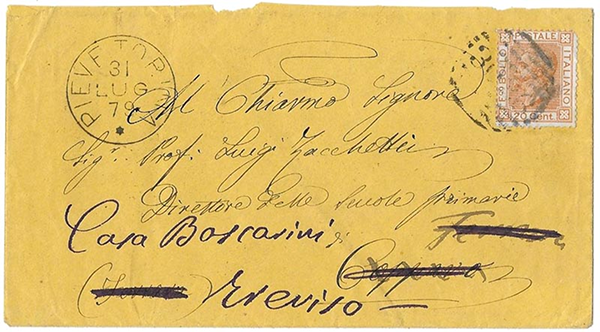 PIEVE TORINA
31
LUG
79
FRANCO BOLLO POSTALE ITALIANO
20 Cent.
Al Chiarmo Signore
Sig.r Prof. Luigi Zacchetti
Direttore delle Scuole primarie
Casa Boscarini di
Treviso